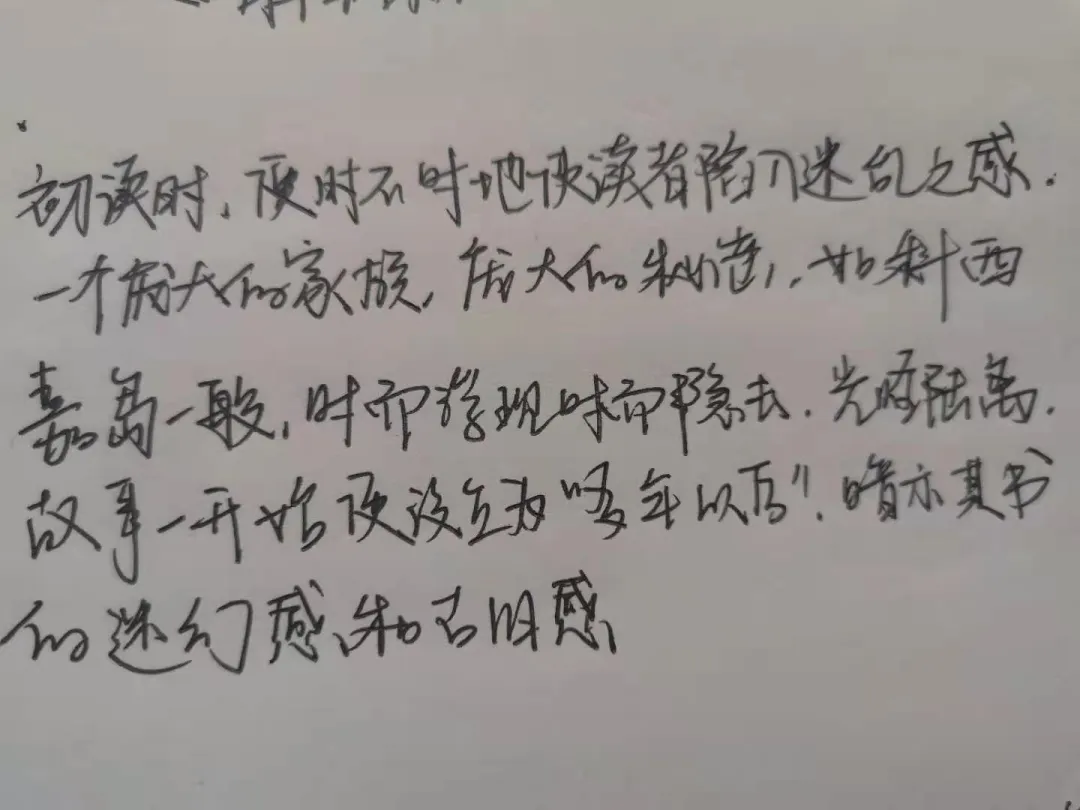 初读时，便时不时地使读者陷入迷乱之感．
一个庞大的家族，庞大的制造，如科西
嘉岛一般，时而浮现时而隐去．光怪陆离．
故事一开始便设立为“多年以后”．暗示其书
的迷幻感和古旧感